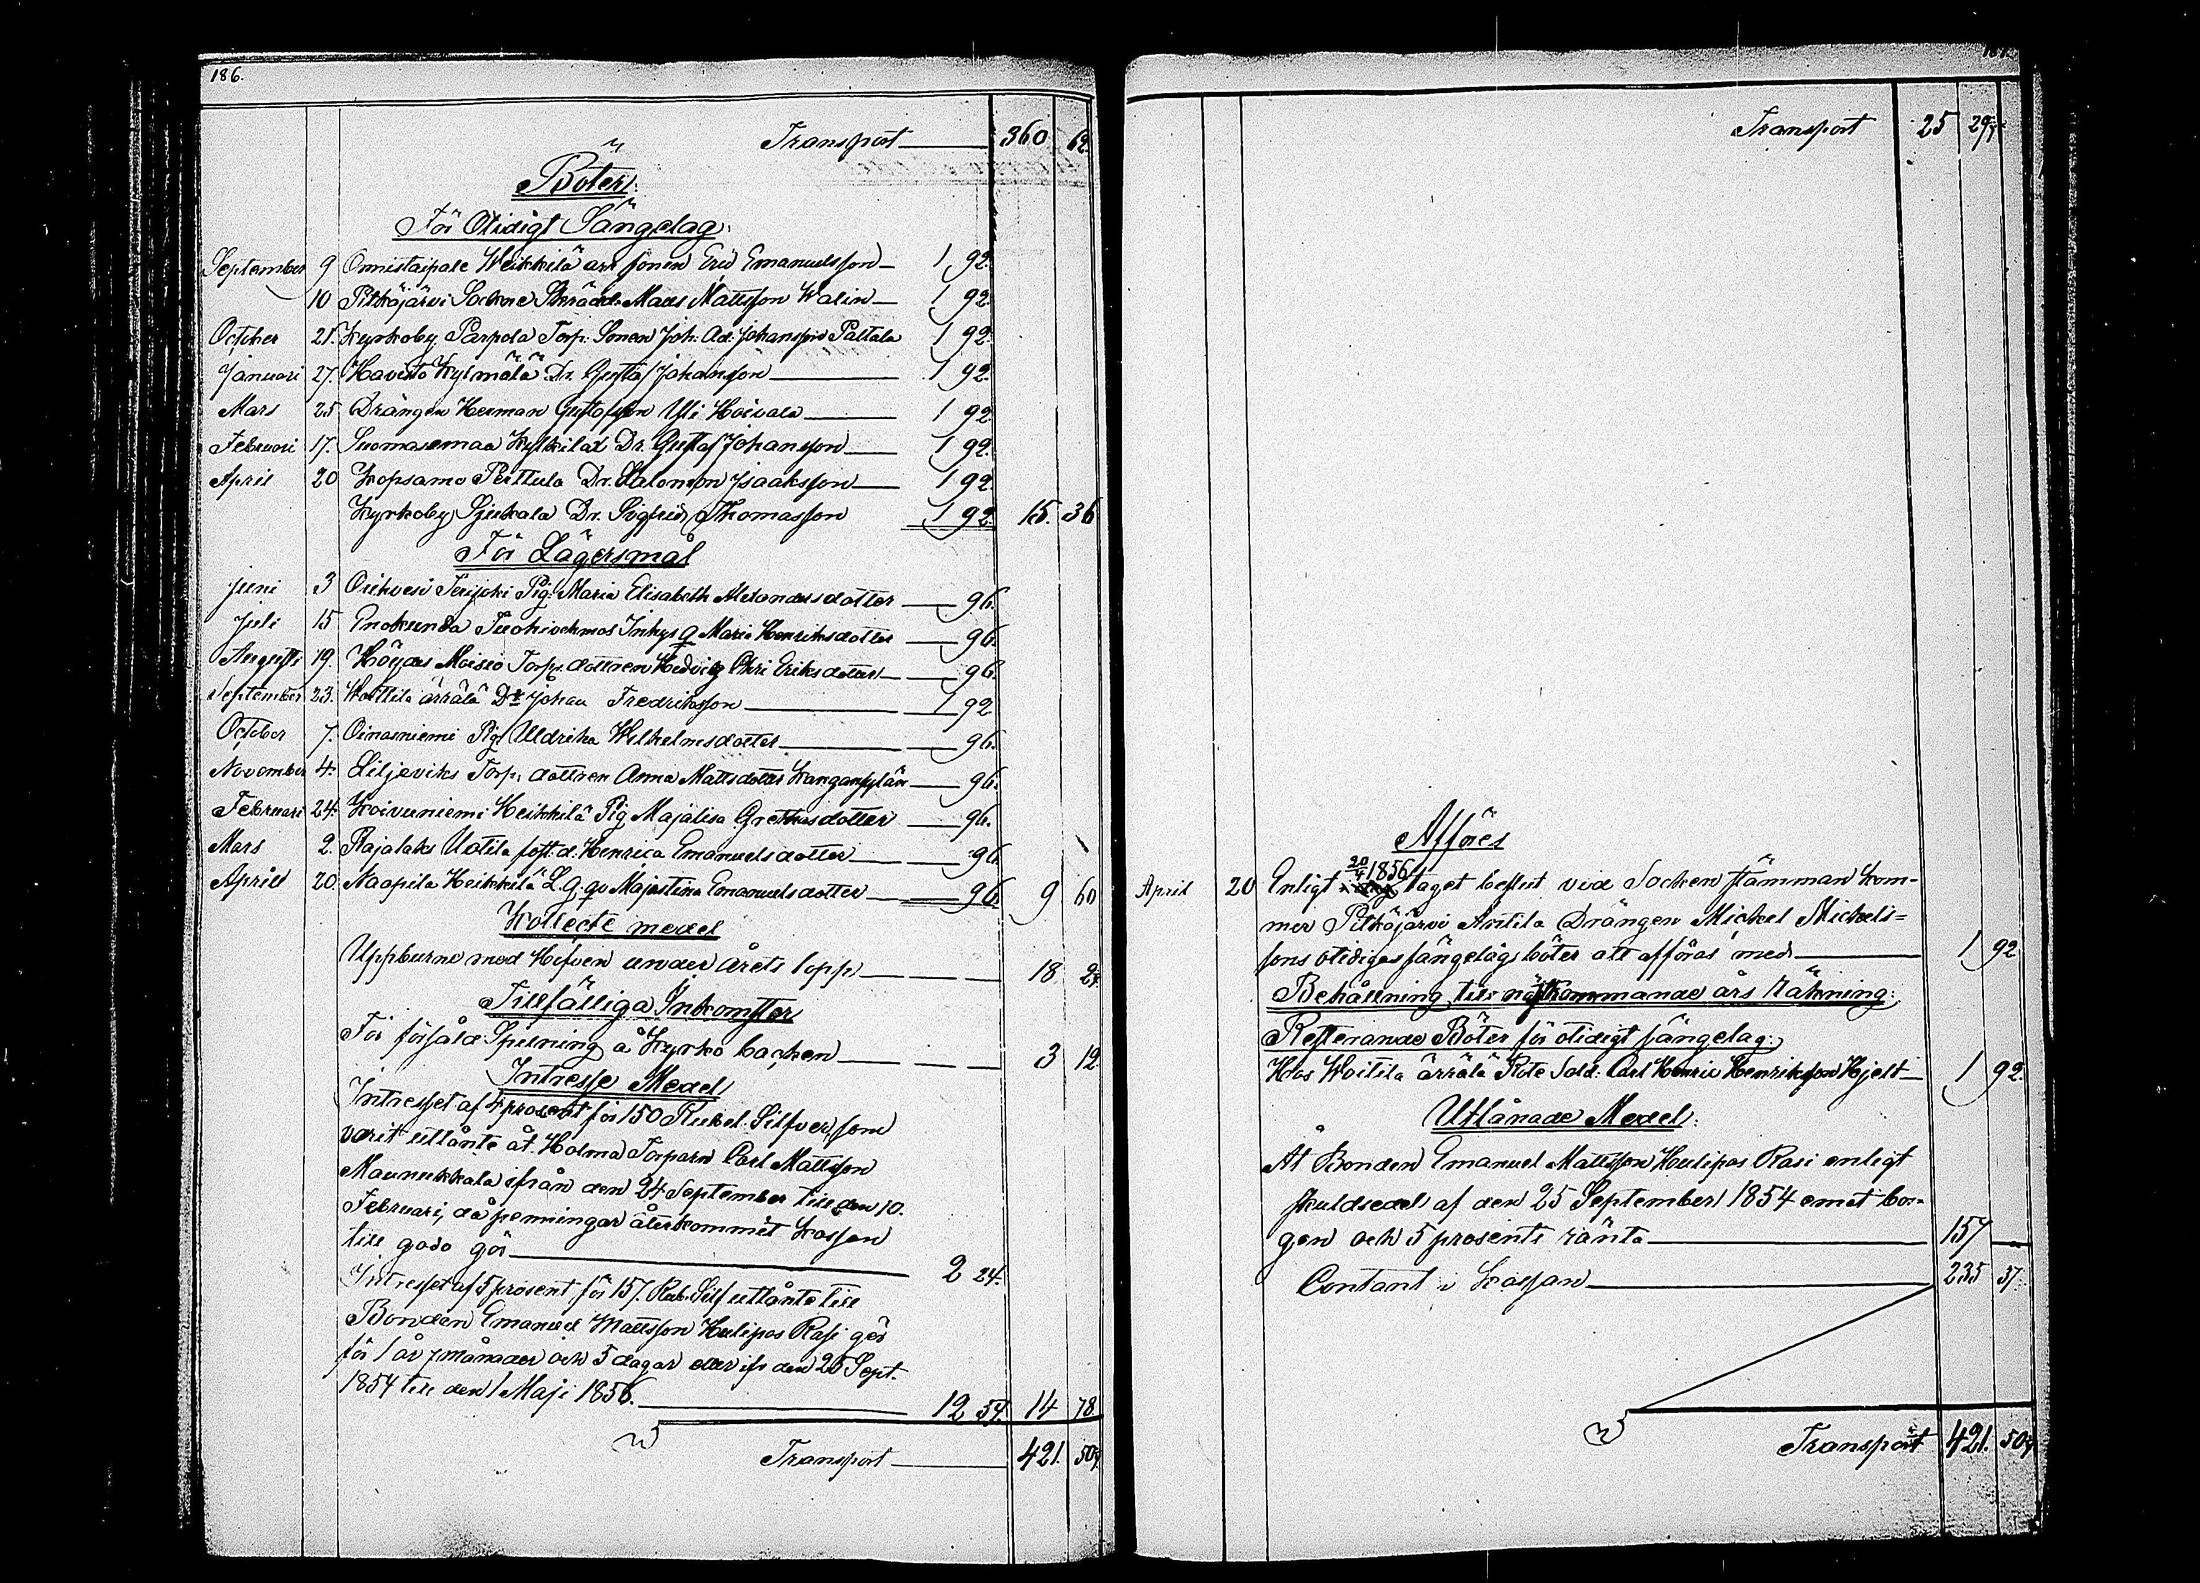 186.
Transport 360 62.
Böter.
För Otidigt Sängelag.
September 9 Onnistaipale Heikkilä arr sonen Eric Emanuelsson 1 92.
10 Pitkäjärvi Sockne Skrädd. Matts Mattsson Walin 1 92.
October 21. Kyrkoby Parpola Torp. Sonen Joh: Ad: Johansson Paltala 1 92.
Januari 27. Havisto Kylmälä Dr. Gustaf Johansson 1 92.
Mars 25 Drängen Herman Gustafsson Yli Hoivala 1 92
Februari 17. Suomasemaa Dr. Gustaf Johansson 1 92.
April 20 Kopsamo Perttula Dr. Salomon Isaaksson 1 92.
Kyrkoby Dr. Sigfrid Thomasson 1 92. 15. 36
För Lägersmål
Juni 3 Orihvesi Pig. Maria Elisabeth Alexandersdotter 96.
Juli 15 Enokunda Inhys q Maria Henriksdotter 96.
Augusti 19. Höydes Moisio Torp. dottren Hedvig Eriksdotter 96.
September 23. Woittila ärrälä Dr Johan Fredriksson 1 92
October 7. Oinasniemi Pig. Uldrika Wilhelmsdotter 96.
November 4. Liljeviks Torp. dottren Anna Mattsdotter 96.
Februari 24. Koivuniemi Heikkilä Pig Majalisa 96.
Mars 2. Rajalaks Uotila Henrica Emanuelsdotter 96.
April 20. Naapila Heikkilä Majastina Emanuelsdotter 96. 9 60
Kollecte medel
Uppburne med Hofven under årets lopp 18 24.
Tillfälliga Inkomster
För försåld Spilning å Kyrko backen 3 12.
Intresse Medel
Intresset af 4 procent för 150 Rubel Silfver, som
varit utlånte åt Holma Torparn Carl Mattsson
Maunukkala ifrån den 24 September till den 10.
Februari, då penningar återkommit Kassan
till godo gör 2 24.
Intresset af 5 prosent för 157. Rub. Silf utlånte till
Bonden Emanuel Mattsson Hulipas Rasi gör
för 1 år 7 månader och 5 dagar eller ifr den 25 Sept.
1854 till den 1 Maji 1856. 12 54. 14 78
Transport 421. 50
Transport 25 29
Afföres
April 20 Enligt 20/4 1856 taget beslut vid Socken stämman kom-
mer Pitkäjärvi Antila Drängen Mickel Mickels=
sons otidiges sängelags böter att afföras med 1 92.
Behållning till nästkommande års räkning:
Resterande Böter för otidigt sängelag:
Hos Woitila ärrälä Rote Sold: Carl Henric Henriksson Hjelt 1 92.
Utlånade Medel:
Åt Bonden Emanuel Mattsson Hulipas Rasi enligt
skuldsedel af den 25 September 1854 emot bor-
gen och 5 prosents ränta 157
Contant i Kassan 235 37.
Transport 421. 50